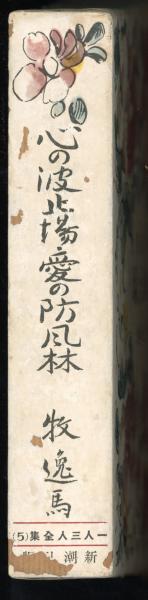 心の波止場・愛の防風林
牧逸馬
一人三人全集(5)
新潮社版